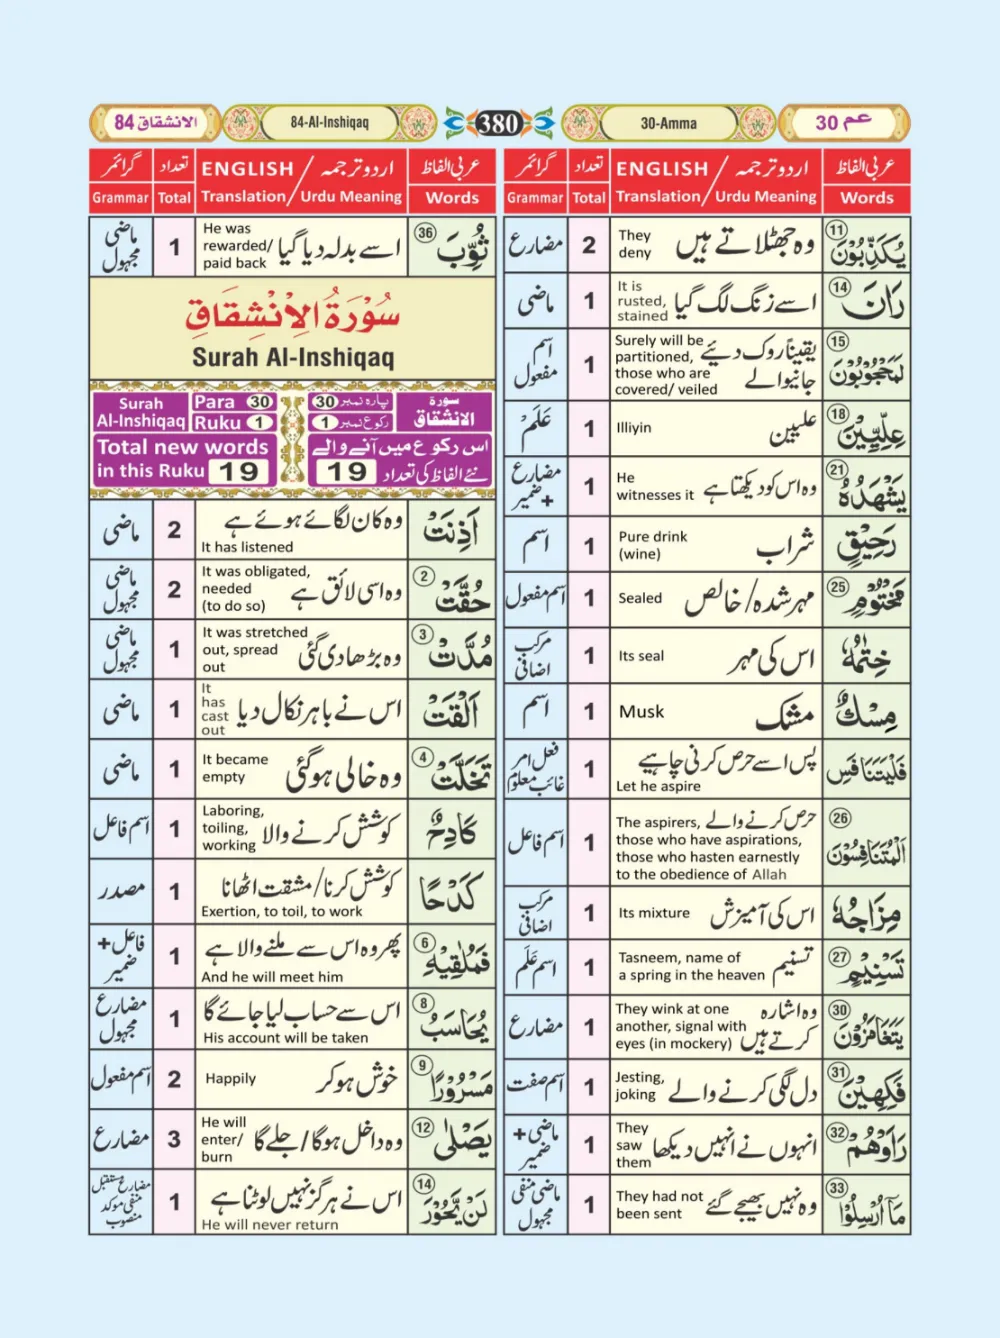 84 الانشقاق
84-Al-Inshiqaq
380
30-Amma
30 عم
عربی الفاظ اردو ترجمہ / ENGLISH تعداد گرائمر
Words Urdu Meaning / Translation Total Grammar
11 يُكَذِّبُوْنَ وہ جھٹلاتے ہیں They deny 2 مضارع
14 رَانَ اسے زنگ لگ گیا It is rusted, stained 1 ماضی
15 لَمَحْجُوْبُوْنَ یقیناً روک دیئے جانیوالے Surely will be partitioned, those who are covered/ veiled 1 اسم مفعول
18 عِلِّيِّيْنَ علیین Illiyin 1 عَلَم
21 يَشْهَدُهُ وہ اس کو دیکھتا ہے He witnesses it 1 مضارع + ضمیر
رَحِيْقٍ شراب Pure drink (wine) 1 اسم
25 مَخْتُوْمٍ مہر شدہ/ خالص Sealed 1 اسم مفعول
خِتٰمُهٗ اس کی مہر Its seal 1 مرکب اضافی
مِسْكٌ مشک Musk 1 اسم
فَلْيَتَنَافَسِ پس اسے حرص کرنی چاہیے Let he aspire 1 فعل امر غائب معلوم
26 الْمُتَنَافِسُوْنَ حرص کرنے والے The aspirers, those who have aspirations, those who hasten earnestly to the obedience of Allah 1 اسم فاعل
مِزَاجُهٗ اس کی آمیزش Its mixture 1 مرکب اضافی
27 تَسْنِيْمٍ تسنیم Tasneem, name of a spring in the heaven 1 اسم عَلَم
30 يَتَغَامَزُوْنَ وہ اشارہ کرتے ہیں They wink at one another, signal with eyes (in mockery) 1 مضارع
31 فَكِهِيْنَ دل لگی کرنے والے Jesting, joking 1 اسم صفت
32 رَاَوْهُمْ انہوں نے انہیں دیکھا They saw them 1 ماضی + ضمیر
33 مَآ اُرْسِلُوْا وہ نہیں بھیجے گئے They had not been sent 1 ماضی منفی مجہول
عربی الفاظ اردو ترجمہ / ENGLISH تعداد گرائمر
Words Urdu Meaning / Translation Total Grammar
36 ثُوِّبَ اسے بدلہ دیا گیا He was rewarded/ paid back 1 ماضی مجہول
سُوْرَةُ الْاِنْشِقَاقِ
Surah Al-Inshiqaq
Surah Al-Inshiqaq Para 30 پارہ نمبر 30 سورۃ الانشقاق
Ruku 1 رکوع نمبر 1
Total new words in this Ruku 19
اس رکوع میں آنے والے نئے الفاظ کی تعداد 19
اَذِنَتْ وہ کان لگائے ہوئے ہے It has listened 2 ماضی
2 حُقَّتْ وہ اسی لائق ہے It was obligated, needed (to do so) 2 ماضی مجہول
3 مُدَّتْ وہ بڑھا دی گئی It was stretched out, spread out 1 ماضی مجہول
اَلْقَتْ اس نے باہر نکال دیا It has cast out 1 ماضی
4 تَخَلَّتْ وہ خالی ہو گئی It became empty 1 ماضی
كَادِحٌ کوشش کرنے والا Laboring, toiling, working 1 اسم فاعل
كَدْحًا کوشش کرنا/ مشقت اٹھانا Exertion, to toil, to work 1 مصدر
6 فَمُلٰقِيْهِ پھر وہ اس سے ملنے والا ہے And he will meet him 1 فاعل + ضمیر
8 يُحَاسَبُ اس سے حساب لیا جائے گا His account will be taken 1 مضارع مجہول
9 مَسْرُوْرًا خوش ہو کر Happily 2 اسم مفعول
12 يَصْلٰى وہ داخل ہوگا/ جلے گا He will enter/ burn 3 مضارع
14 لَنْ يَّحُوْرَ اس نے ہرگز نہیں لوٹنا ہے He will never return 1 مضارع مستقبل منفی موکد منصوب